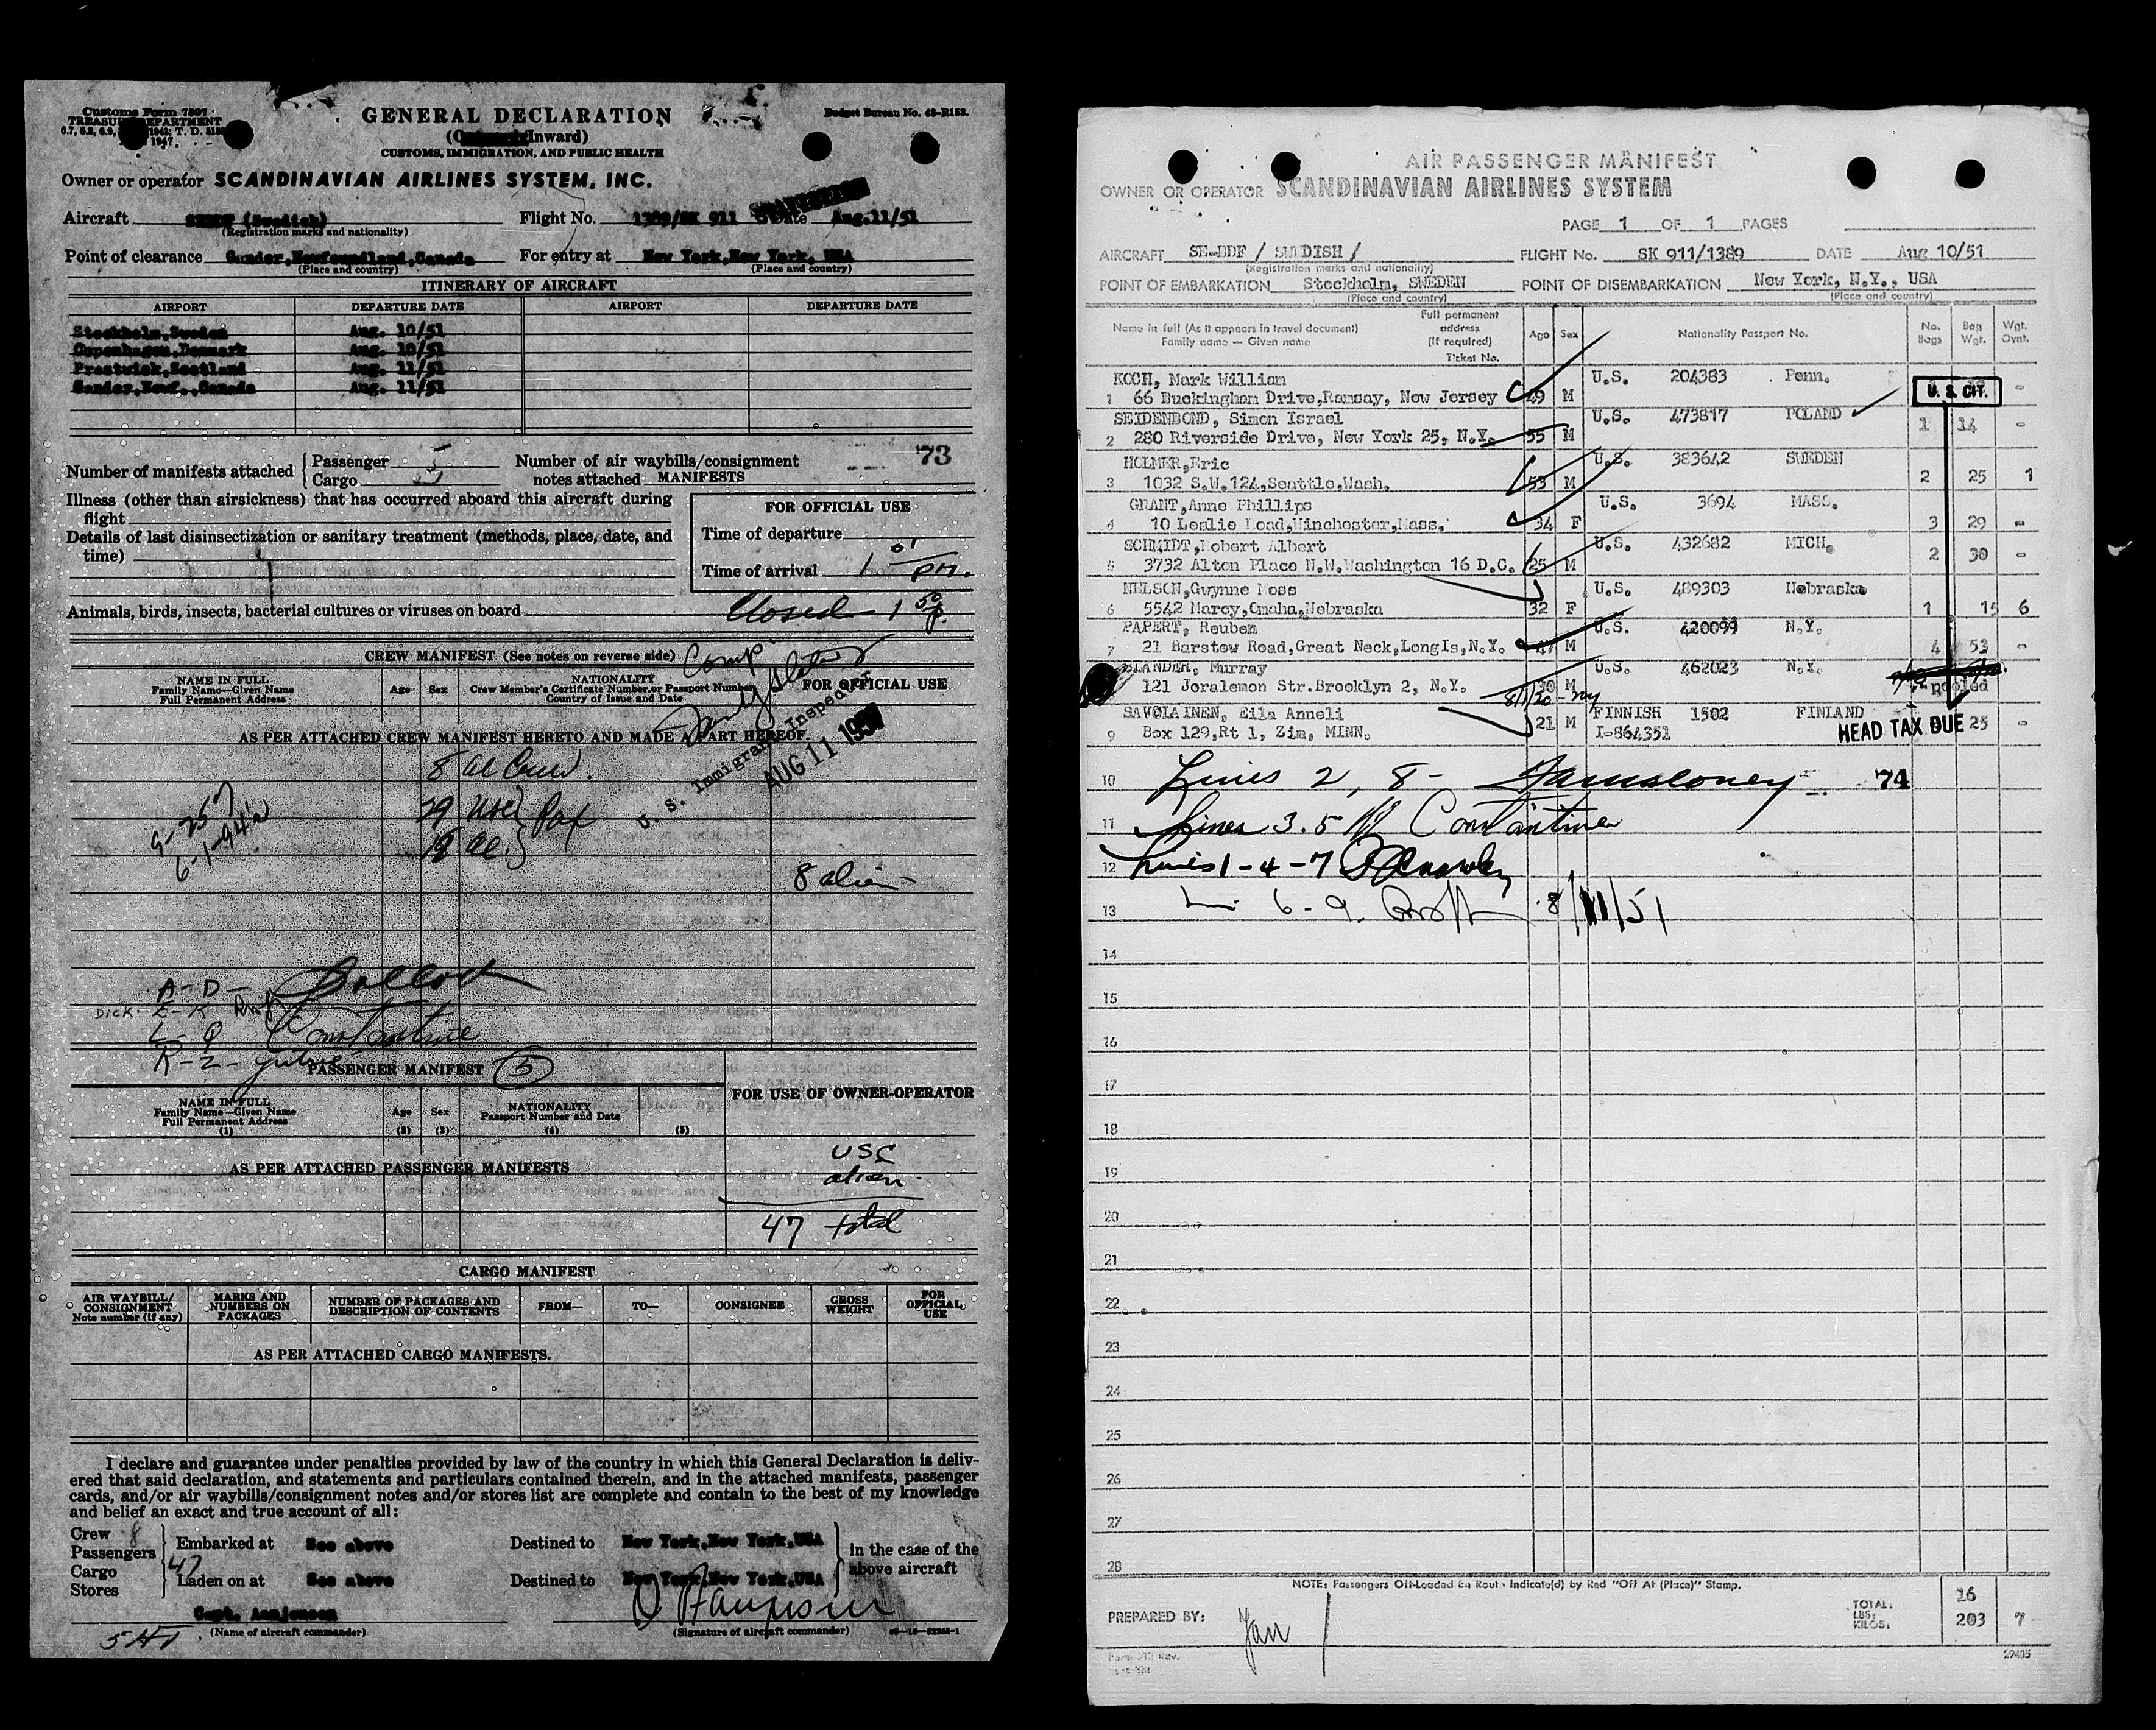 Customs Form 7507
TREASURY DEPARTMENT
GENERAL DECLARATION
Budget Bureau No. 48-R158.
Inward)
CUSTOMS, IMMIGRATION, AND PUBLIC HEALTH
Owner or operator SCANDINAVIAN AIRLINES SYSTEM, INC.
Aircraft (Swedish) Flight No. 1389/SK 911 Date Aug.11/51
(Registration marks and nationality)
Point of clearance Gander,Newfoundland,Canada For entry at New York,New York, USA
(Place and country) (Place and country)
ITINERARY OF AIRCRAFT
AIRPORT DEPARTURE DATE AIRPORT DEPARTURE DATE
Stockholm,Sweden Aug. 10/51
Copenhagen,Denmark Aug. 10/51
Prestwick,Scotland Aug. 11/51
Gander,Newf.,Canada Aug. 11/51
Number of manifests attached Passenger 5 Cargo
Number of air waybills/consignment notes attached MANIFESTS 73
Illness (other than airsickness) that has occurred aboard this aircraft during
flight
Details of last disinsectization or sanitary treatment (methods, place, date, and
time)
FOR OFFICIAL USE
Time of departure
Time of arrival 1 01 pm.
Animals, birds, insects, bacterial cultures or viruses on board
Closed - 1 50 p.
CREW MANIFEST (See notes on reverse side)
Comp.
NAME IN FULL
Family Name—Given Name
Full Permanent Address
Age Sex
NATIONALITY
Crew Member's Certificate Number or Passport Number
Country of Issue and Date
FOR OFFICIAL USE
AS PER ATTACHED CREW MANIFEST HERETO AND MADE A PART HEREOF.
U. S. Immigrant Inspector
AUG 11 1951
8 al Crew.
29 USC
18 al. } Pax
8 alien
A - D -
DICK. E - K
L - Q Constantine
R - Z -
PASSENGER MANIFEST 5
FOR USE OF OWNER-OPERATOR
NAME IN FULL
Family Name—Given Name
Full Permanent Address
(1)
Age
(2)
Sex
(3)
NATIONALITY
Passport Number and Date
(4) (5)
AS PER ATTACHED PASSENGER MANIFESTS
USC
alien
47 total
CARGO MANIFEST
AIR WAYBILL/
CONSIGNMENT
Note number (if any)
MARKS AND
NUMBERS ON
PACKAGES
NUMBER OF PACKAGES AND
DESCRIPTION OF CONTENTS
FROM— TO— CONSIGNEE
GROSS
WEIGHT
FOR
OFFICIAL
USE
AS PER ATTACHED CARGO MANIFESTS.
I declare and guarantee under penalties provided by law of the country in which this General Declaration is deliv-
ered that said declaration, and statements and particulars contained therein, and in the attached manifests, passenger
cards, and/or air waybills/consignment notes and/or stores list are complete and contain to the best of my knowledge
and belief an exact and true account of all:
Crew 8
Passengers 47
Cargo
Stores
Embarked at See above Destined to New York,New York,USA
Laden on at See above Destined to New York,New York,USA
in the case of the
above aircraft
Capt.
(Name of aircraft commander) (Signature of aircraft commander)
AIR PASSENGER MANIFEST
OWNER OR OPERATOR SCANDINAVIAN AIRLINES SYSTEM
PAGE 1 OF 1 PAGES
AIRCRAFT SE-BDF / SWEDISH / FLIGHT No. SK 911/1389 DATE Aug 10/51
(Registration marks and nationality)
POINT OF EMBARKATION Stockholm, SWEDEN POINT OF DISEMBARKATION New York, N.Y., USA
(Place and country) (Place and country)
Name in full (As it appears in travel document)
Family name — Given name
Full permanent
address
(If required)
Ticket No.
Age Sex Nationality Passport No.
No.
Bags
Bag
Wgt.
Wgt.
Ovnt.
KOCH, Mark William U.S. 204383 Penn.
1 66 Buckingham Drive,Ramsay, New Jersey 49 M -
U. S. CIT.
SEIDENBOND, Simon Israel U.S. 473817 POLAND
2 280 Riverside Drive, New York 25, N.Y. 55 M 1 14 -
HOLMER,Eric U.S. 383642 SWEDEN
3 1032 S.W.124,Seattle,Wash. 53 M 2 25 1
GRANT,Anne Phillips U.S. 3694 MASS.
4 10 Leslie Load,Winchester,Mass. 34 F 3 29 -
SCHMIDT,Robert Albert U.S. 432682 MICH.
5 3732 Alton Place N.W.Washington 16 D.C. 25 M 2 30 -
NELSON,Gwynne Moss U.S. 489303 Nebraska
6 5542 Marcy,Omaha,Nebraska 32 F 1 15 6
PAPERT, Reuben U.S. 420099 N.Y.
7 21 Barstow Road,Great Neck,LongIs,N.Y. 47 M 4 53 -
SLANDER, Murray U.S. 462023 N.Y.
121 Joralemon Str.Brooklyn 2, N.Y. 30 M pooled
SAVOLAINEN, Eila Anneli FINNISH 1502 FINLAND
9 Box 129,Rt 1, Zim, MINN. 21 M I-864351 25 -
HEAD TAX DUE
10 Lines 2, 8 - 74
11 Lines 3.5 Constantine
12 Lines 1-4-7
13 6 - 9. 8/11/51
14
15
16
17
18
19
20
21
22
23
24
25
26
27
28
NOTE: Passengers Off-Loaded En Route Indicate(d) by Red "Off At (Place)" Stamp.
PREPARED BY: Jan
TOTAL: 16
LBS:
KILOS: 203 7
29405